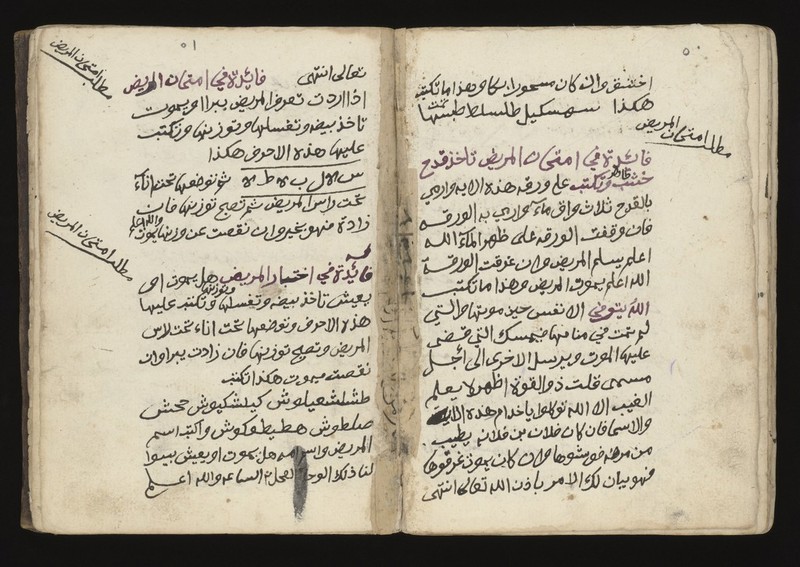 اختنق وان كان مسحورا بكا وهذا ما تكتب
هكذا
مطلب امتحان المريض
فائدة في امتحان المريض تاخذ قدح
خشب طاهر وتكتب على ورقه هذه الايه وارمي
بالقدح ثلاث واق ماء وارمي به الورقه
فان وقفت الورقه على ظهر الماء الله
اعلم يسلم المريض وان غرقت الورقة
الله اعلم يموت المريض وهذا ما تكتب
الله يتوفى الانفس حين موتها والتي
لم تمت في منامها فيمسك التي قضى
عليها الموت ويرسل الاخرى الى اجل
مسمى قلت ذو القوة اظهر لا يعلم
الغيب الا الله توكلوا ياخدام هذه الايه
والاسما فان كان فلان بن فلانه يطيب
من مرضه فوشوها وان كان يموت غرقوها
فهو بيان لك الامر باذن الله تعالى انتهى
مطلب امتحان المريض
تعالى انتهى فائدة في امتحان المريض
اذا اردت تعرف المريض يبرا او يموت
تاخذ بيضه وتغسلها وتوزنها وتكتب
عليها هذه الاحرف هكذا
س ه ل ب ه ط ه ثم توضعها تحت اناء
تحت راس المريض ثم تصبح توزنها فان
زادة فهو بخير وان نقصت عن وزنها يموت والله اعلم
مطلب امتحان المريض
فائدة في اختبار المريض هل يموت او
يعيش تاخذ بيضه وتغسلها وتوزنها وتكتب عليها
هذه الاحرف وتوضعها تحت اناء تحت راس
المريض وتصبح توزنها فان زادت يبرا وان
نقصت يموت هكذا تكتب
المريض واسم امه هل يموت او يعيش بينوا
لنا ذلك الوحا العجل الساعه والله اعلم